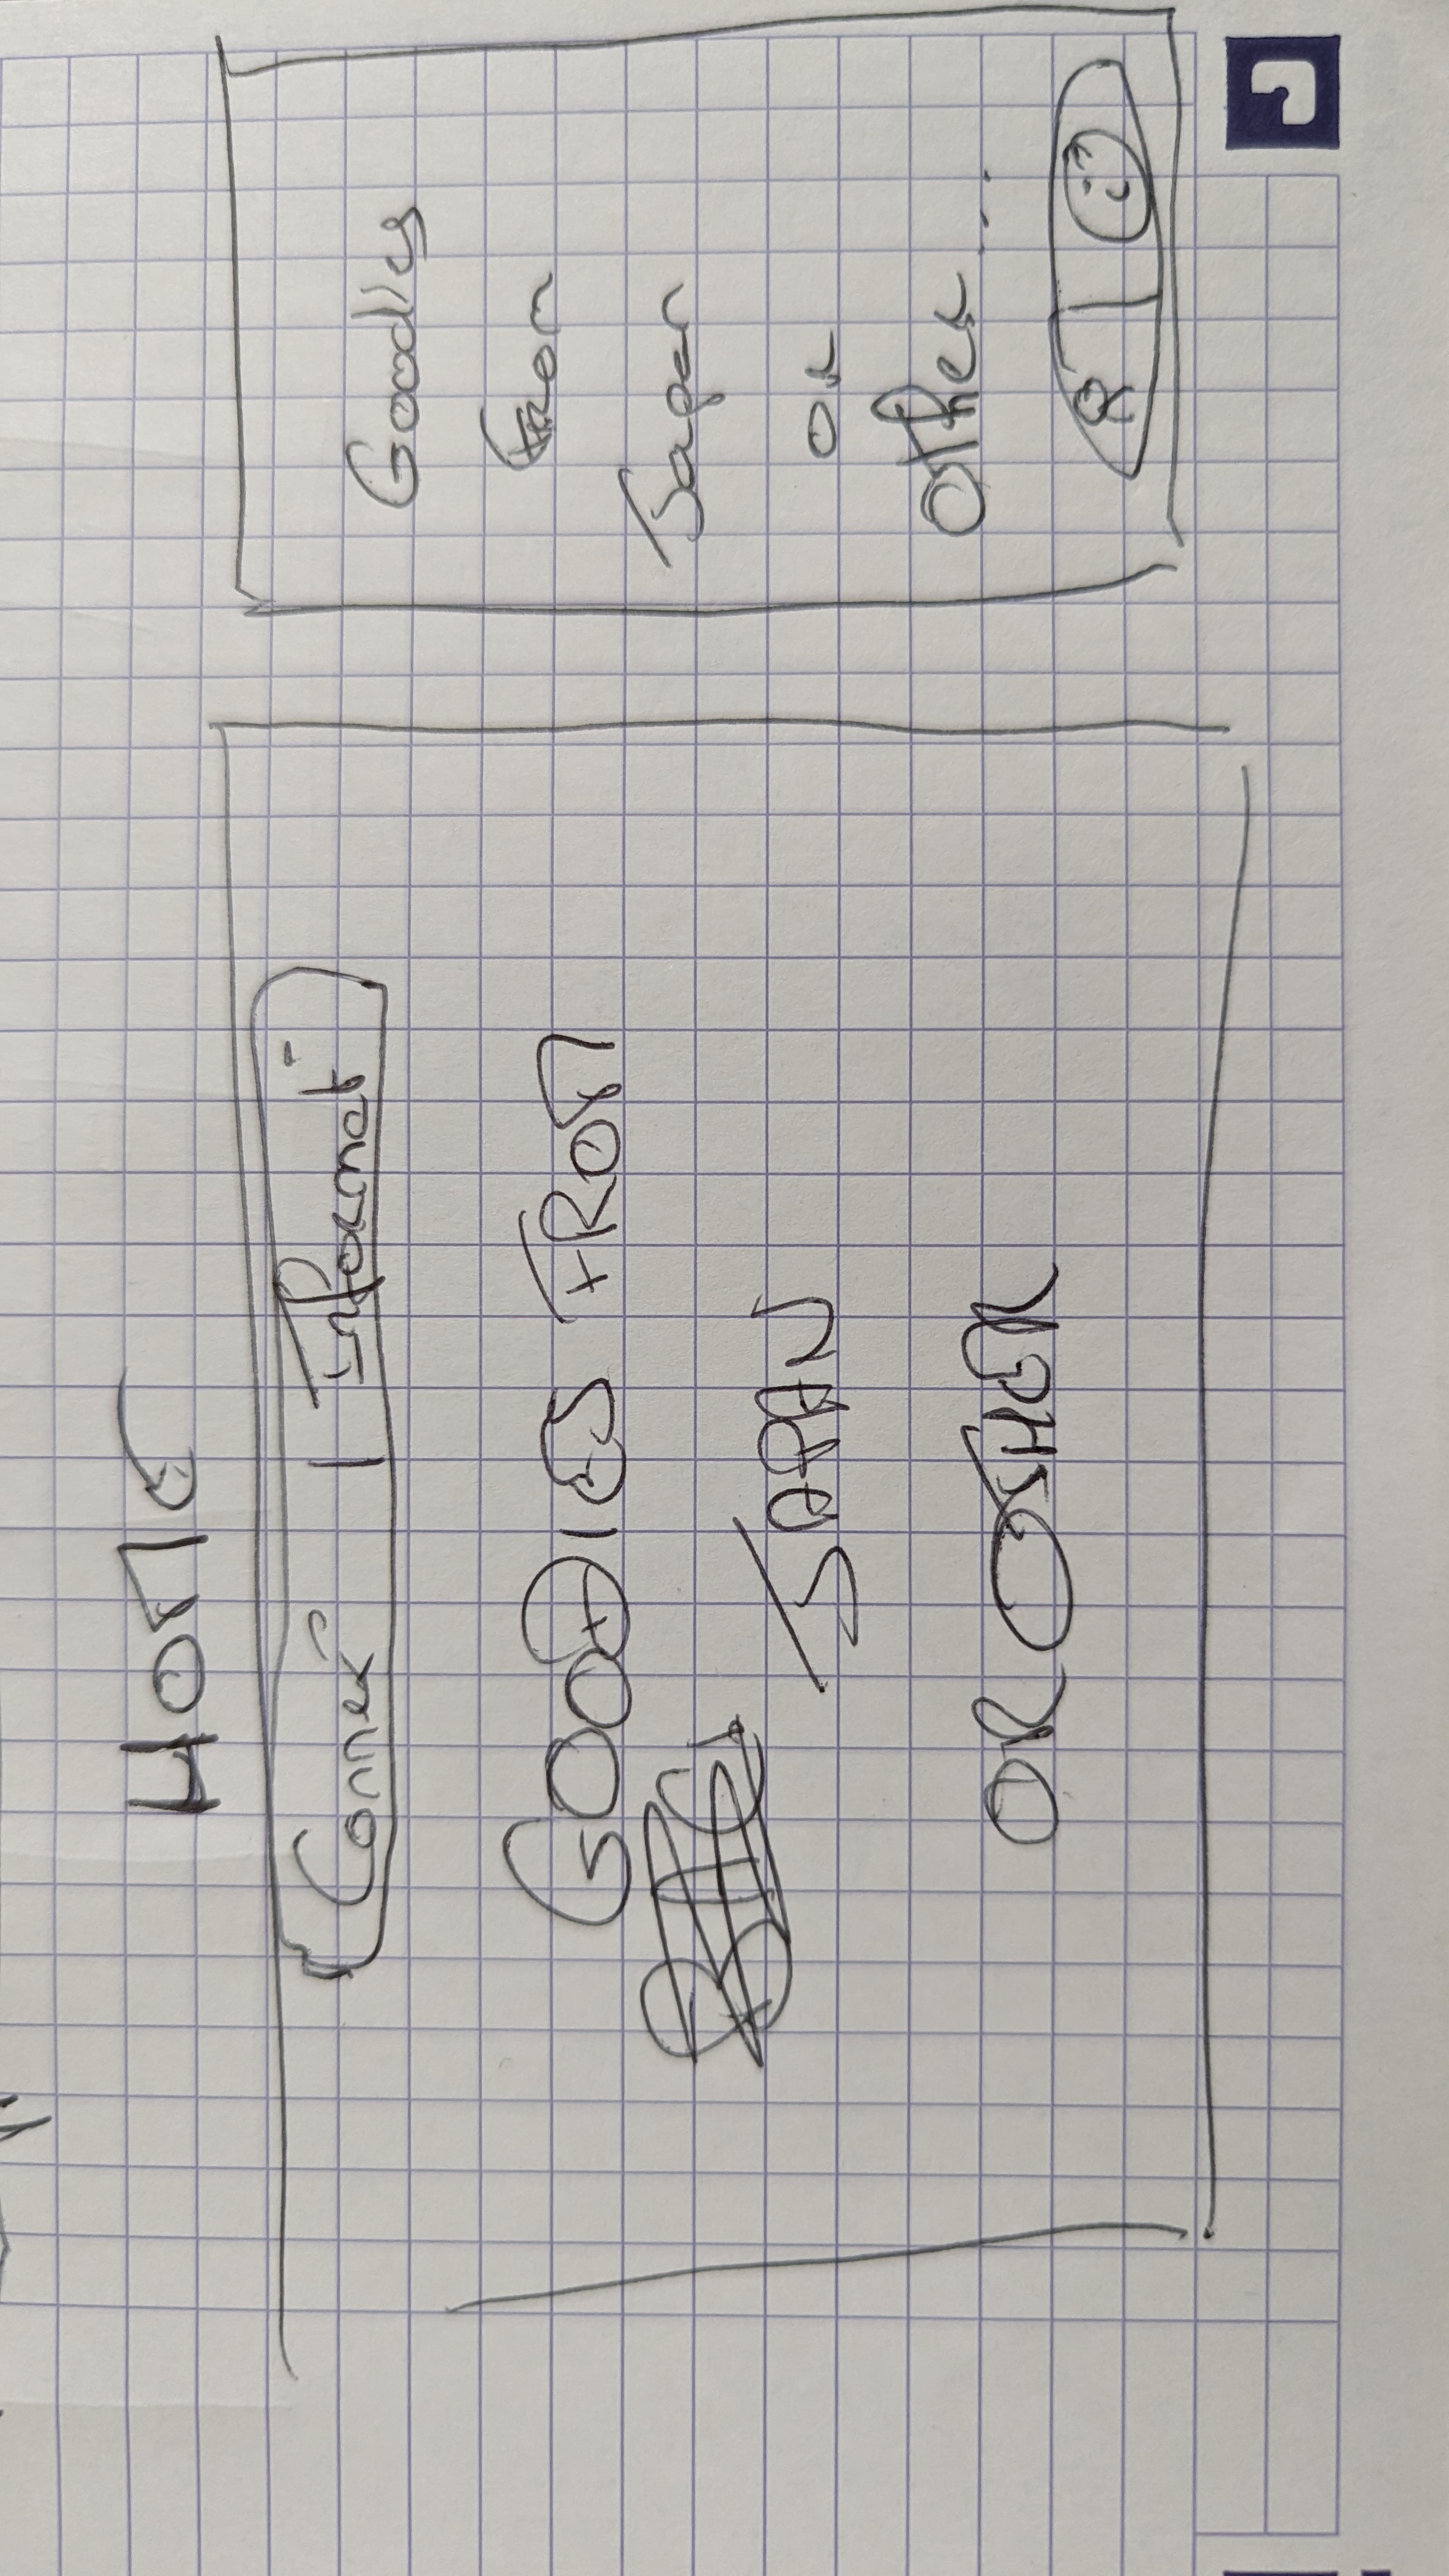 HOME
Connex° | Informat°
GOODIES FROM
JAPAN
OR OTHER
Goodies
From
Japan
or
Other...